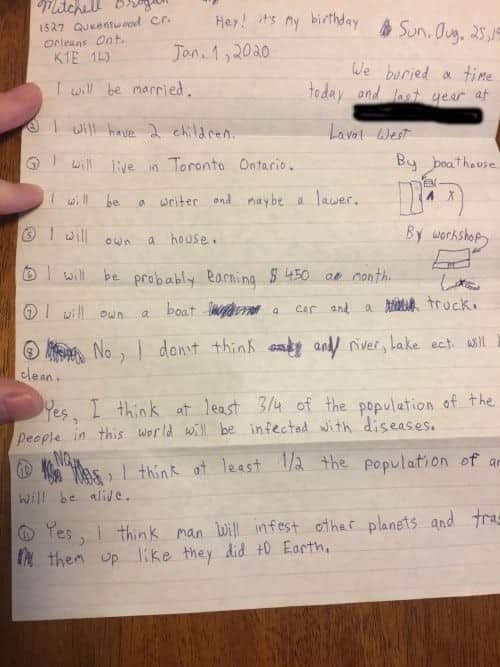 Mitchell
1327 Queenswood Cr.
Orleans Ont.
K1E
Hey! it's my birthday
Sun. Aug. 25,
Jan. 1, 2020
We buried a time
today and last year at
Laval West
I will be married.
② I will have 2 children.
③ I will live in Toronto Ontario.
I will be a writer and maybe a lawer.
⑤ I will own a house.
By boathouse
X
By workshop
⑥ I will be probably earning $450 a month.
⑦ I will own a boat a car and a truck.
⑧ No, I don't think any river, Lake ect. will
clean.
Yes, I think at least 3/4 of the population of the
people in this world will be infected with diseases.
⑩ No, I think at least 1/2 the population of
will be alive.
⑪ Yes, I think man will infest other planets and
them up like they did to Earth.